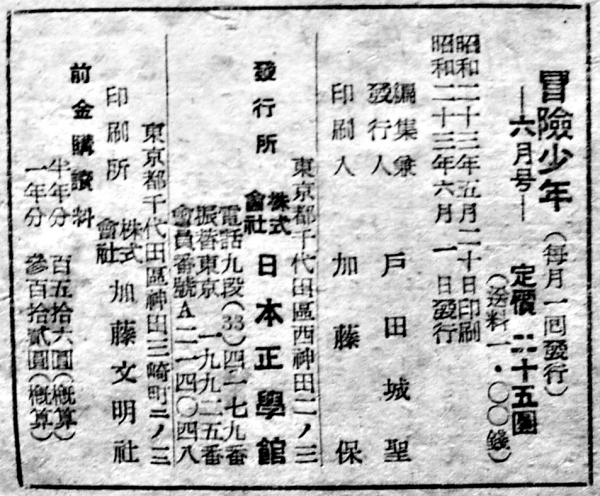 冒險少年
―六月号―
(每月一回發行)
定價 二十五圓
(送料一・〇〇錢)
昭和二十三年五月二十日印刷
昭和二十三年六月 一 日發行
編集兼
發行人 戸田城聖
印刷人 加藤 保
東京都千代田區西神田二ノ三
發行所 株式會社 日本正學館
電話九段(33)四一七九番
振替東京 一九九二五番
會員番號A二一四〇四八
東京都千代田區神田三崎町二ノ三
印刷所 株式會社 加藤文明社
前金購讀料
半年分 百五拾六圓(概算)
一年分 參百拾貳圓(概算)